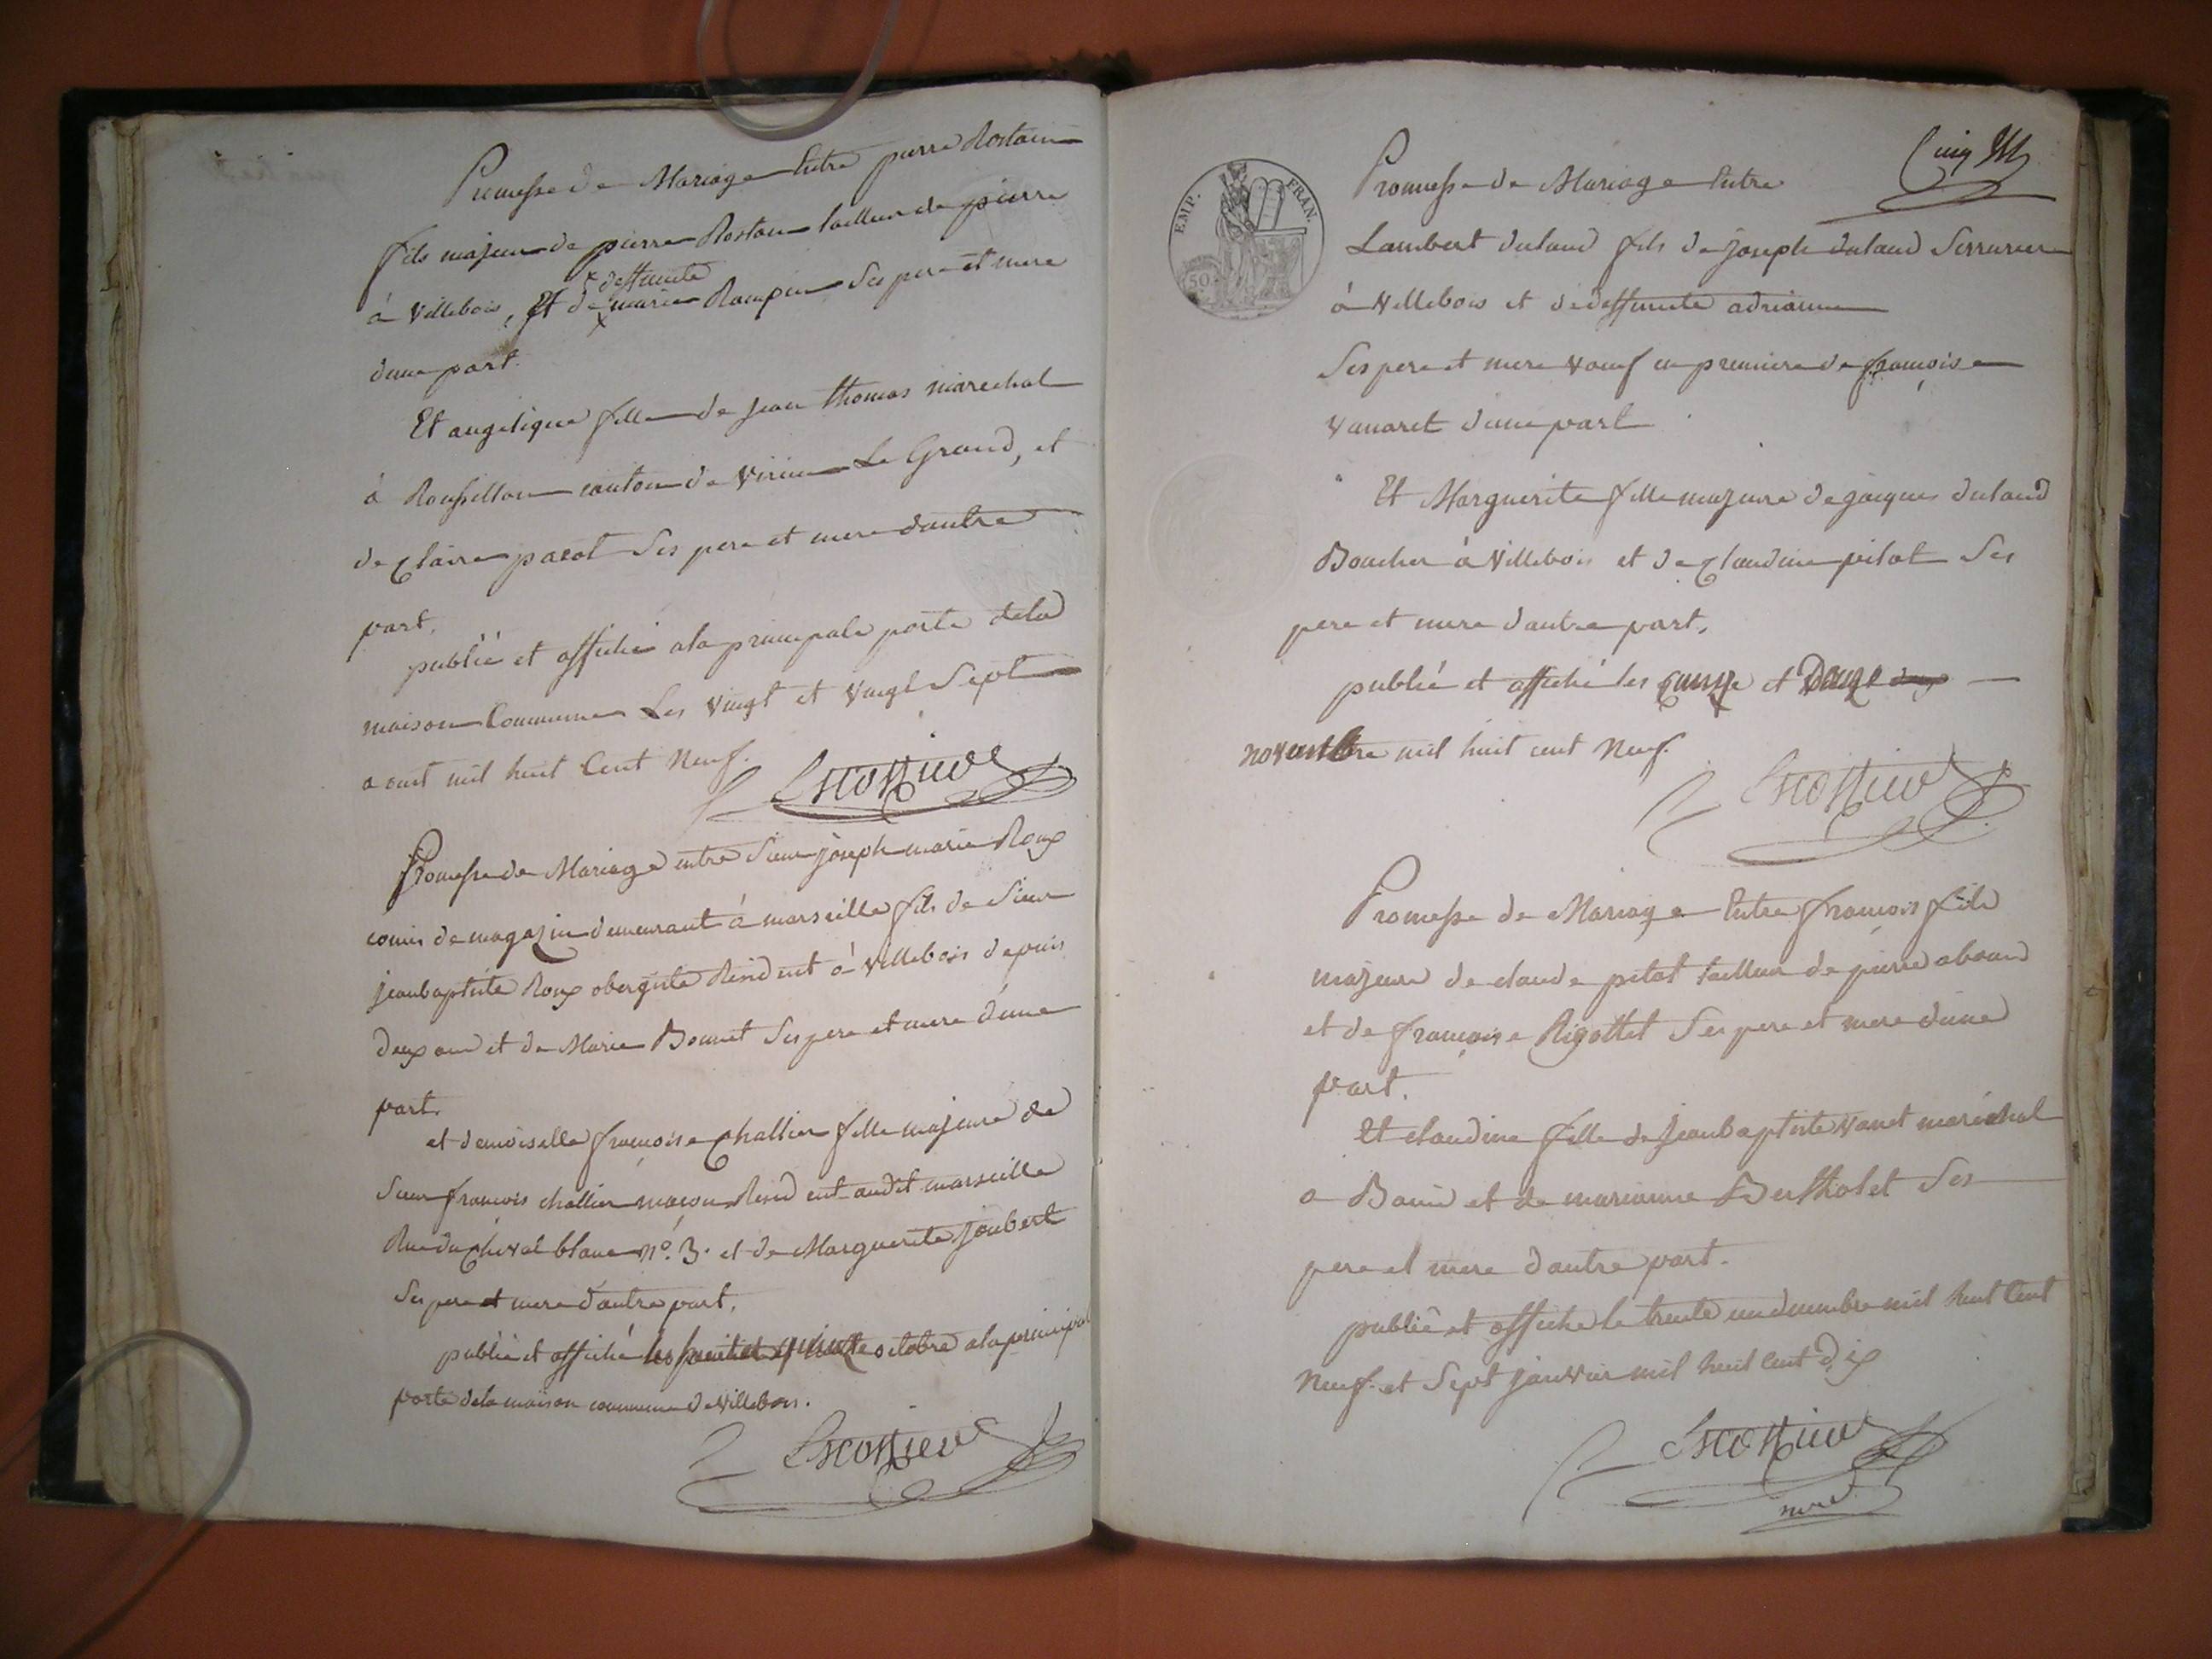 Promesse de Mariage Entre pierre Rostain
fils majeur de pierre Rostain tailleur de pierre
x deffunte
à Villebois, Et de x marie Rampin Ses pere et mere
dune part.
Et angelique fille de jean thomas marechal
à Roussillon canton de Virieu Le Grand, et
de Claire pacot Ses pere et mere dautre
part.
publié et affiché ala principale porte dela
maison Commune Les Vingt et Vingt Sept
aout mil huit Cent Neuf.
Promesse de Mariage entre Sieur joseph marie Roux
comis de magazin demeurant à marseille fils de Sieur
jeanbaptiste Roux obergiste Resident à Villebois depuis
deux ans et de Marie Bonnet Ses pere et mere d'une
part.
et demoiselle françoise Challier fille majeure de
Sieur françois challier maçon Resid ent audit marseille
Rue du Cheval blanc n.º 3. et de Marguerite joubert
Ses pere et mere d'autre part.
publié et affiché les huit et quinze octobre ala principal
porte dela maison commune de Villebois.
Promesse de Mariage Entre
EMP. FRAN.
50
Lambert dulaud fils de joseph dulaud Serrurier
à Villebois et de deffunte adrianne
Ses pere et mere Veuf en premiere de françoise
Vanaret d'une part
Et Marguerite fille majeure de jacques dulaud
Boucher à Villebois et de Claudine pitot Ses
pere et mere dautre part.
publié et affiché les et Douze
novembre mil huit cent Neuf.
Promesse de Mariage Entre françois fils
majeure de claude pitot tailleur de pierre
et de françoise Rigottet Ses pere et mere d'une
part.
Et claudine fille de Jeanbaptiste Vanet maréchal
a et de marianne Bertholet Ses
pere et mere d'autre part.
publié et affiche le trente un decembre mil huit Cent
Neuf. et Sept janvier mil huit Cent dix